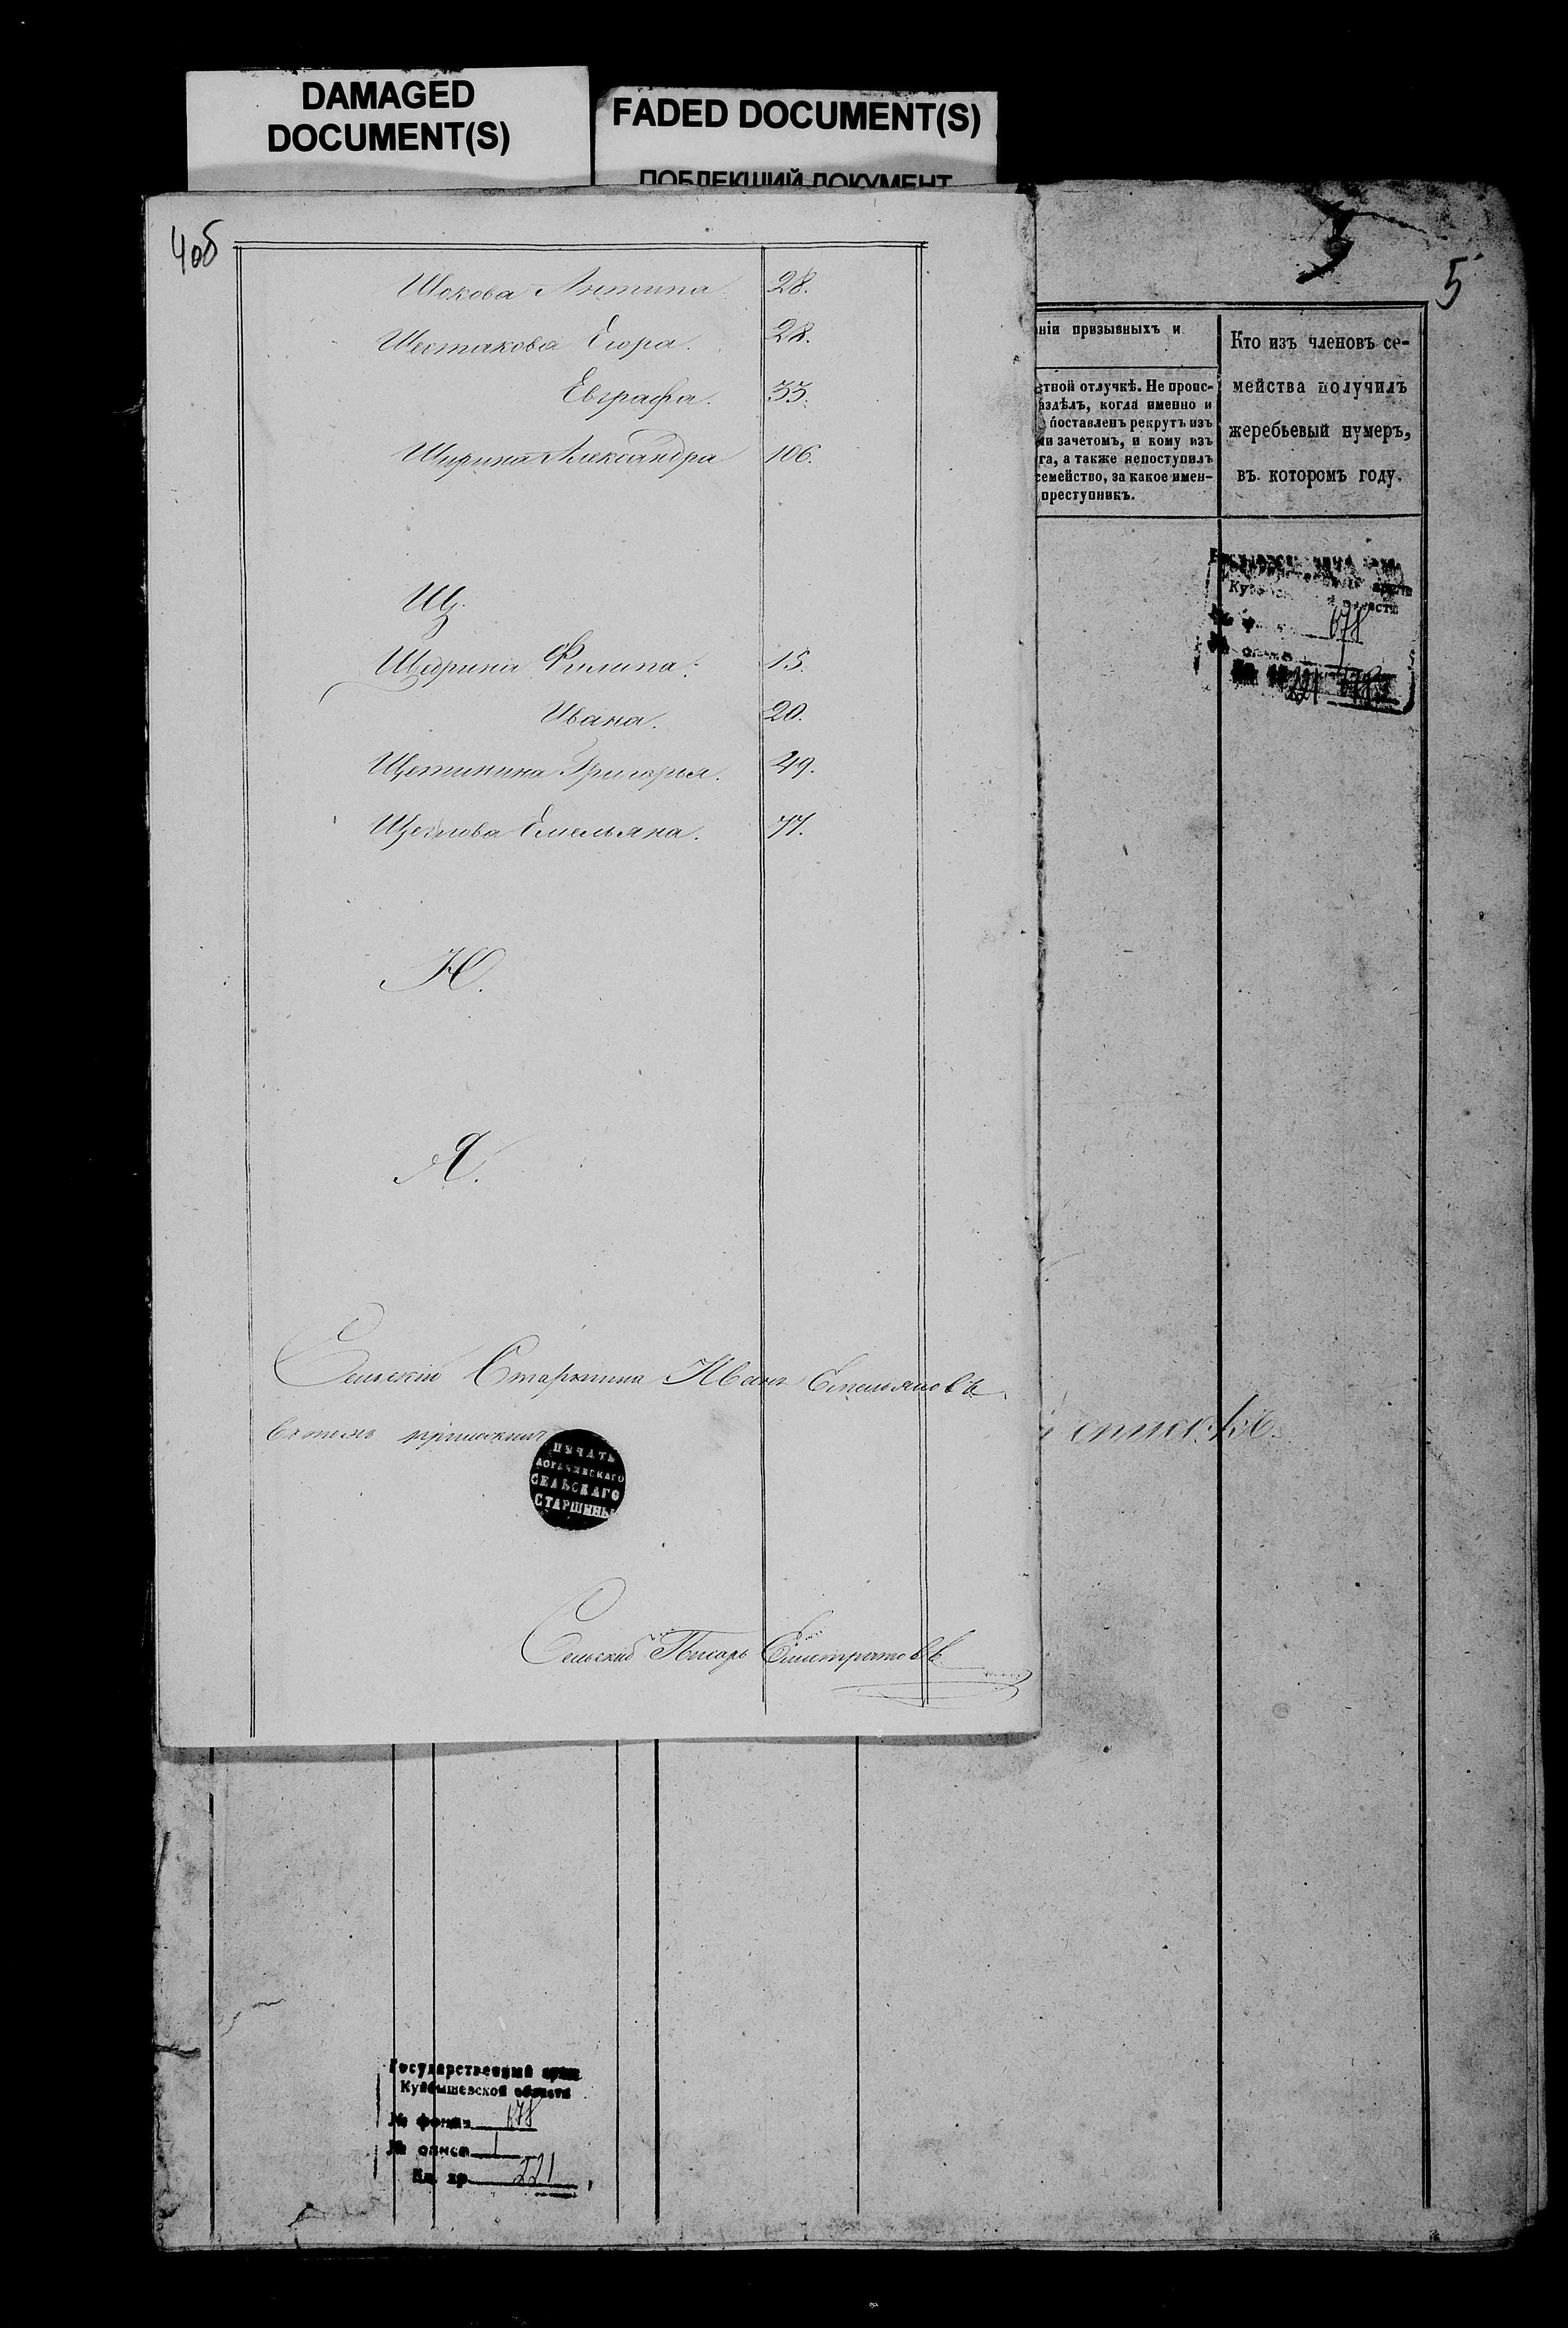 DAMAGED
DOCUMENT(S)
FADED DOCUMENT(S)
ПОБЛЕКШИЙ ДОКУМЕНТ
4об
5
Шокова Антипа 28.
Шестакова Егора. 28.
Евграфа. 33.
Ширина Александра 106.
Щ.
Щарина Филипа. 15.
Ивана. 20.
Щетинина Григорья. 49.
Емельяна. 77.
Ю.
Я.
Сельскій Старшина Иванъ Емельяновъ
ПЕЧАТЬ
СЕЛЬСКАГО
СТАРШИНЫ
Сельскій Писарь
ніи призывныхъ и
тной отлучкѣ. Не проис-
аздѣлъ, когда именно и
поставленъ рекрутъ изъ
ли зачетомъ, и кому изъ
га, а также непоступилъ
семейство, за какое имен-
преступникъ.
Кто изъ членовъ се-
мейства получилъ
жеребьевый нумеръ,
въ которомъ году.
678
Государственный архив
Куйбышевской области
№ фонда 678
№ описи 1
Ед. хр. 221